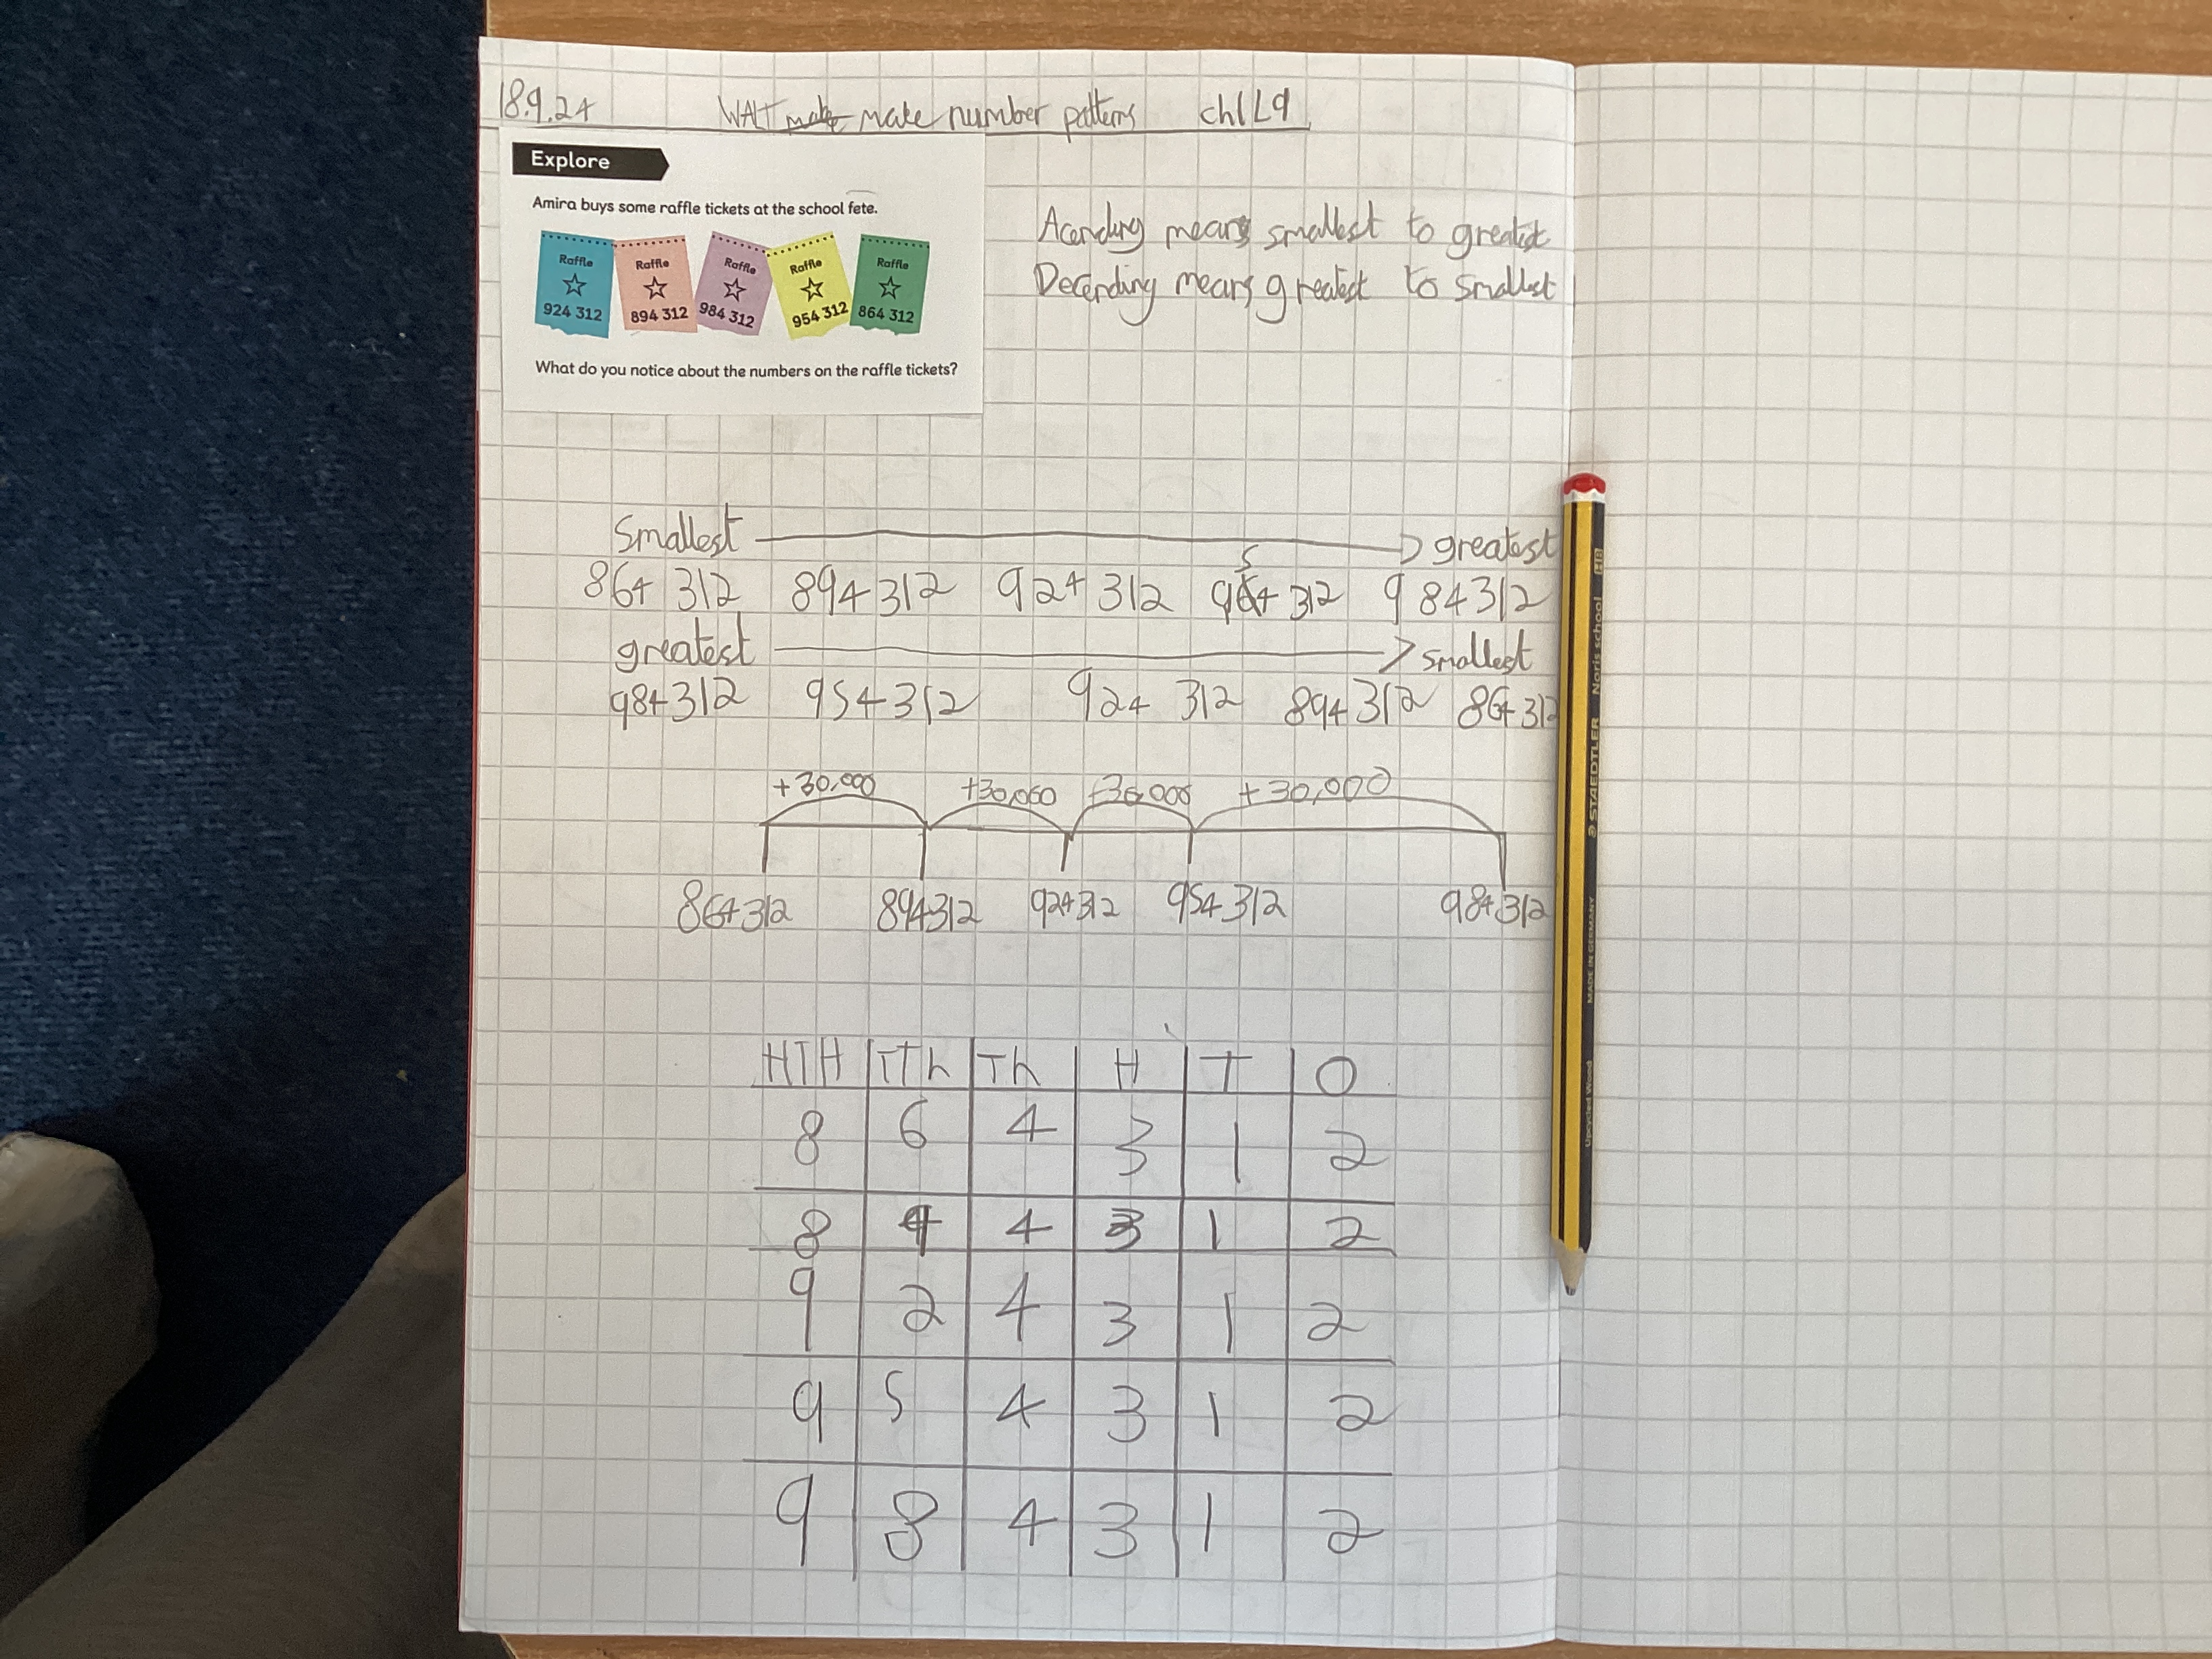 18.9.24 WALT make make number patterns ch1 L9
Explore
Amira buys some raffle tickets at the school fete.
Raffle Raffle Raffle Raffle Raffle
924 312 894 312 984 312 954 312 864 312
What do you notice about the numbers on the raffle tickets?
Acending means smallest to greatest
Decending means greatest to smallest
Smallest greatest
5
864 312 894 312 924 312 964 312 984312
greatest smallest
984312 954312 924 312 894312 864312
+30,000 +30,000 +30,000 +30,000
864312 894312 924312 954312 984312
HTH TTh Th H T O
8 6 4 3 1 2
8 9 4 3 1 2
9 2 4 3 1 2
9 5 4 3 1 2
9 8 4 3 1 2
STAEDTLER Noris school HB
Upcycled Wood MADE IN GERMANY